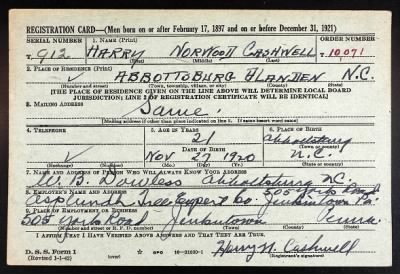 REGISTRATION CARD—(Men born on or after February 17, 1897 and on or before December 31, 1921)
SERIAL NUMBER 1. NAME (Print) ORDER NUMBER
T 912 HARRY NORWOOD CASHWELL 10,071
(First) (Middle) (Last)
2. PLACE OF RESIDENCE (Print)
ABBOTTSBURG BLANDEN N.C.
(Number and street) (Town, township, village, or city) (County) (State)
[THE PLACE OF RESIDENCE GIVEN ON THE LINE ABOVE WILL DETERMINE LOCAL BOARD
JURISDICTION; LINE 2 OF REGISTRATION CERTIFICATE WILL BE IDENTICAL]
3. MAILING ADDRESS
Same
[Mailing address if other than place indicated on line 2. If same insert word same]
4. TELEPHONE 5. AGE IN YEARS 6. PLACE OF BIRTH
21 Abbottsburg
DATE OF BIRTH (Town or county)
Nov 27 1920 N.C.
(Exchange) (Number) (Mo.) (Day) (Yr.) (State or country)
7. NAME AND ADDRESS OF PERSON WHO WILL ALWAYS KNOW YOUR ADDRESS
Abbottsburg N.C.
8. EMPLOYER'S NAME AND ADDRESS 505 York Road
Asplundh Tree Expert Co. Jenkintown Pa.
9. PLACE OF EMPLOYMENT OR BUSINESS
505 York Road Jenkintown Penna.
(Number and street or R. F. D. number) (Town) (County) (State)
I AFFIRM THAT I HAVE VERIFIED ABOVE ANSWERS AND THAT THEY ARE TRUE.
D. S. S. Form 1
(Revised 1-1-42) (over) GPO 16—21630-1 Harry N. Cashwell
(Registrant's signature)